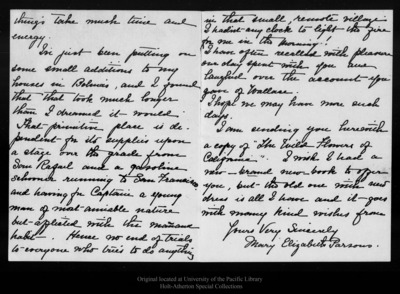 things take much time and
energy.
I've just been putting on
some small additions to my
houses in Bolinas, and I found
that that took much longer
than I dreamed it would.
That primitive place is de-
pendent for its supplies upon
a stage over the grade from
San Rafael and a
schooner running to San Francisco
and having for Captain a young
man of most amiable nature
but afflicted with the mañana
habit. Hence no end of trials
to everyone who tries to do anything
in that small, remote village.
I hadn't any clock to light the fire
for me in the morning!
I have often recalled with pleasure
our day spent with you and
laughed over the account you
gave of Wallace.
I hope we may have more such
days.
I am sending you herewith
a copy of "The Wild Flowers of
California". I wish I had a
new brand new book to offer
you, but the old one with new
dress is all I have and it goes
with many kind wishes from
Yours Very Sincerely
Mary Elizabeth Parsons.
Original located at University of the Pacific Library
Holt-Atherton Special Collections